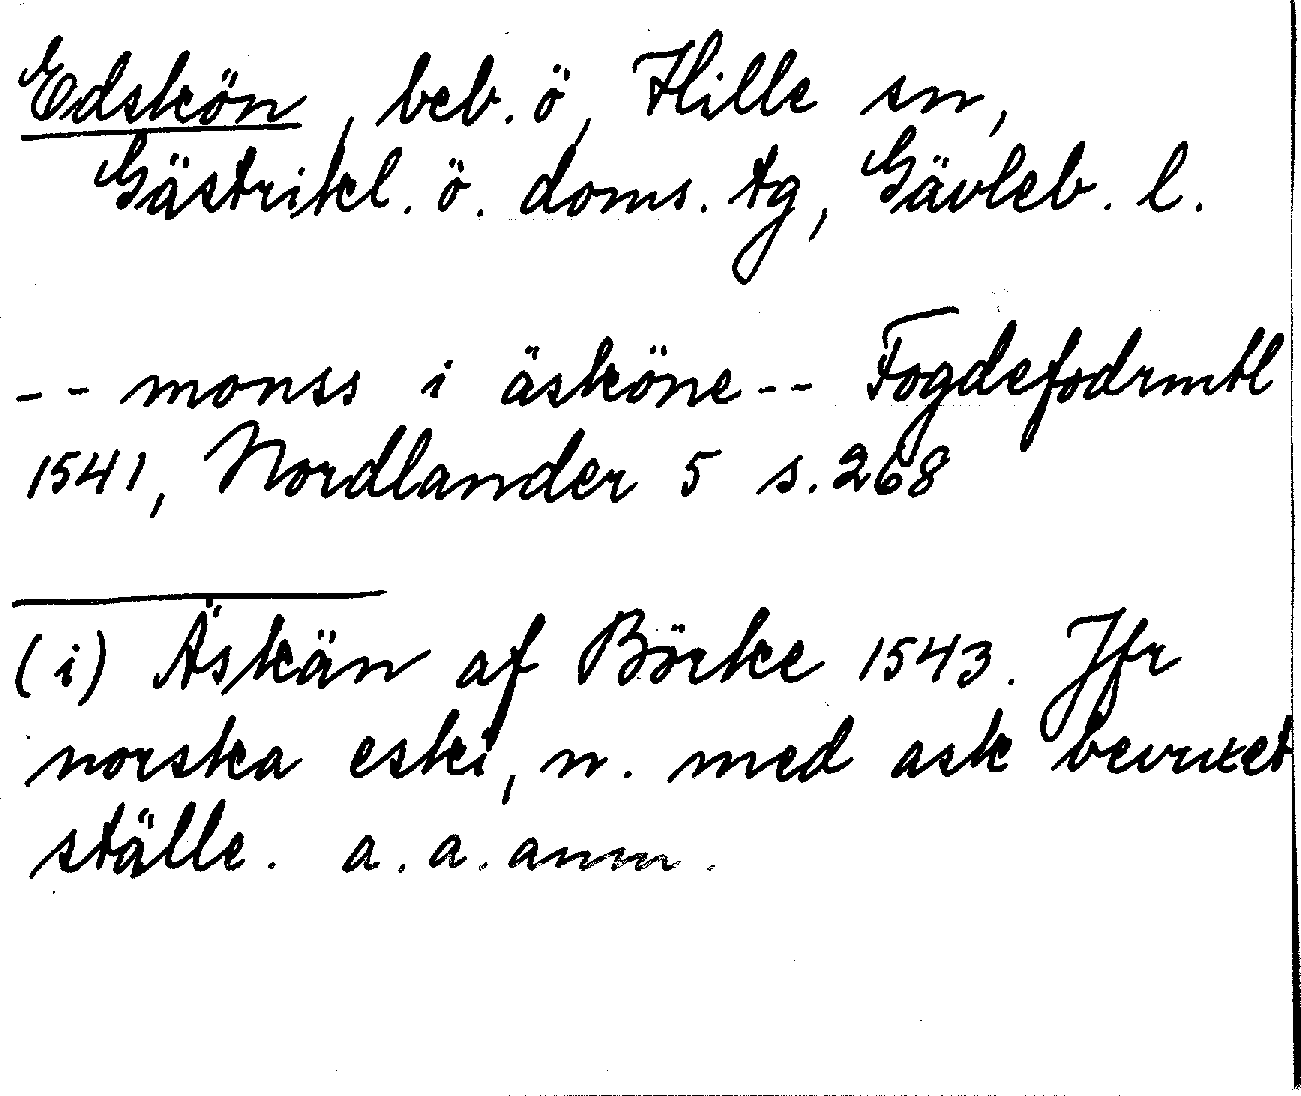 Edskön, beb. ö, Hille sn,
Gästrikl. ö. doms. tg, Gävleb. l.
-- monss i äsköne -- Fogdefodrmtl
1541, Nordlander 5 s. 268
(i) Äskän af Börke 1543. Jfr
norska eski, n. med ask bevuxet
ställe. a. a. anm.